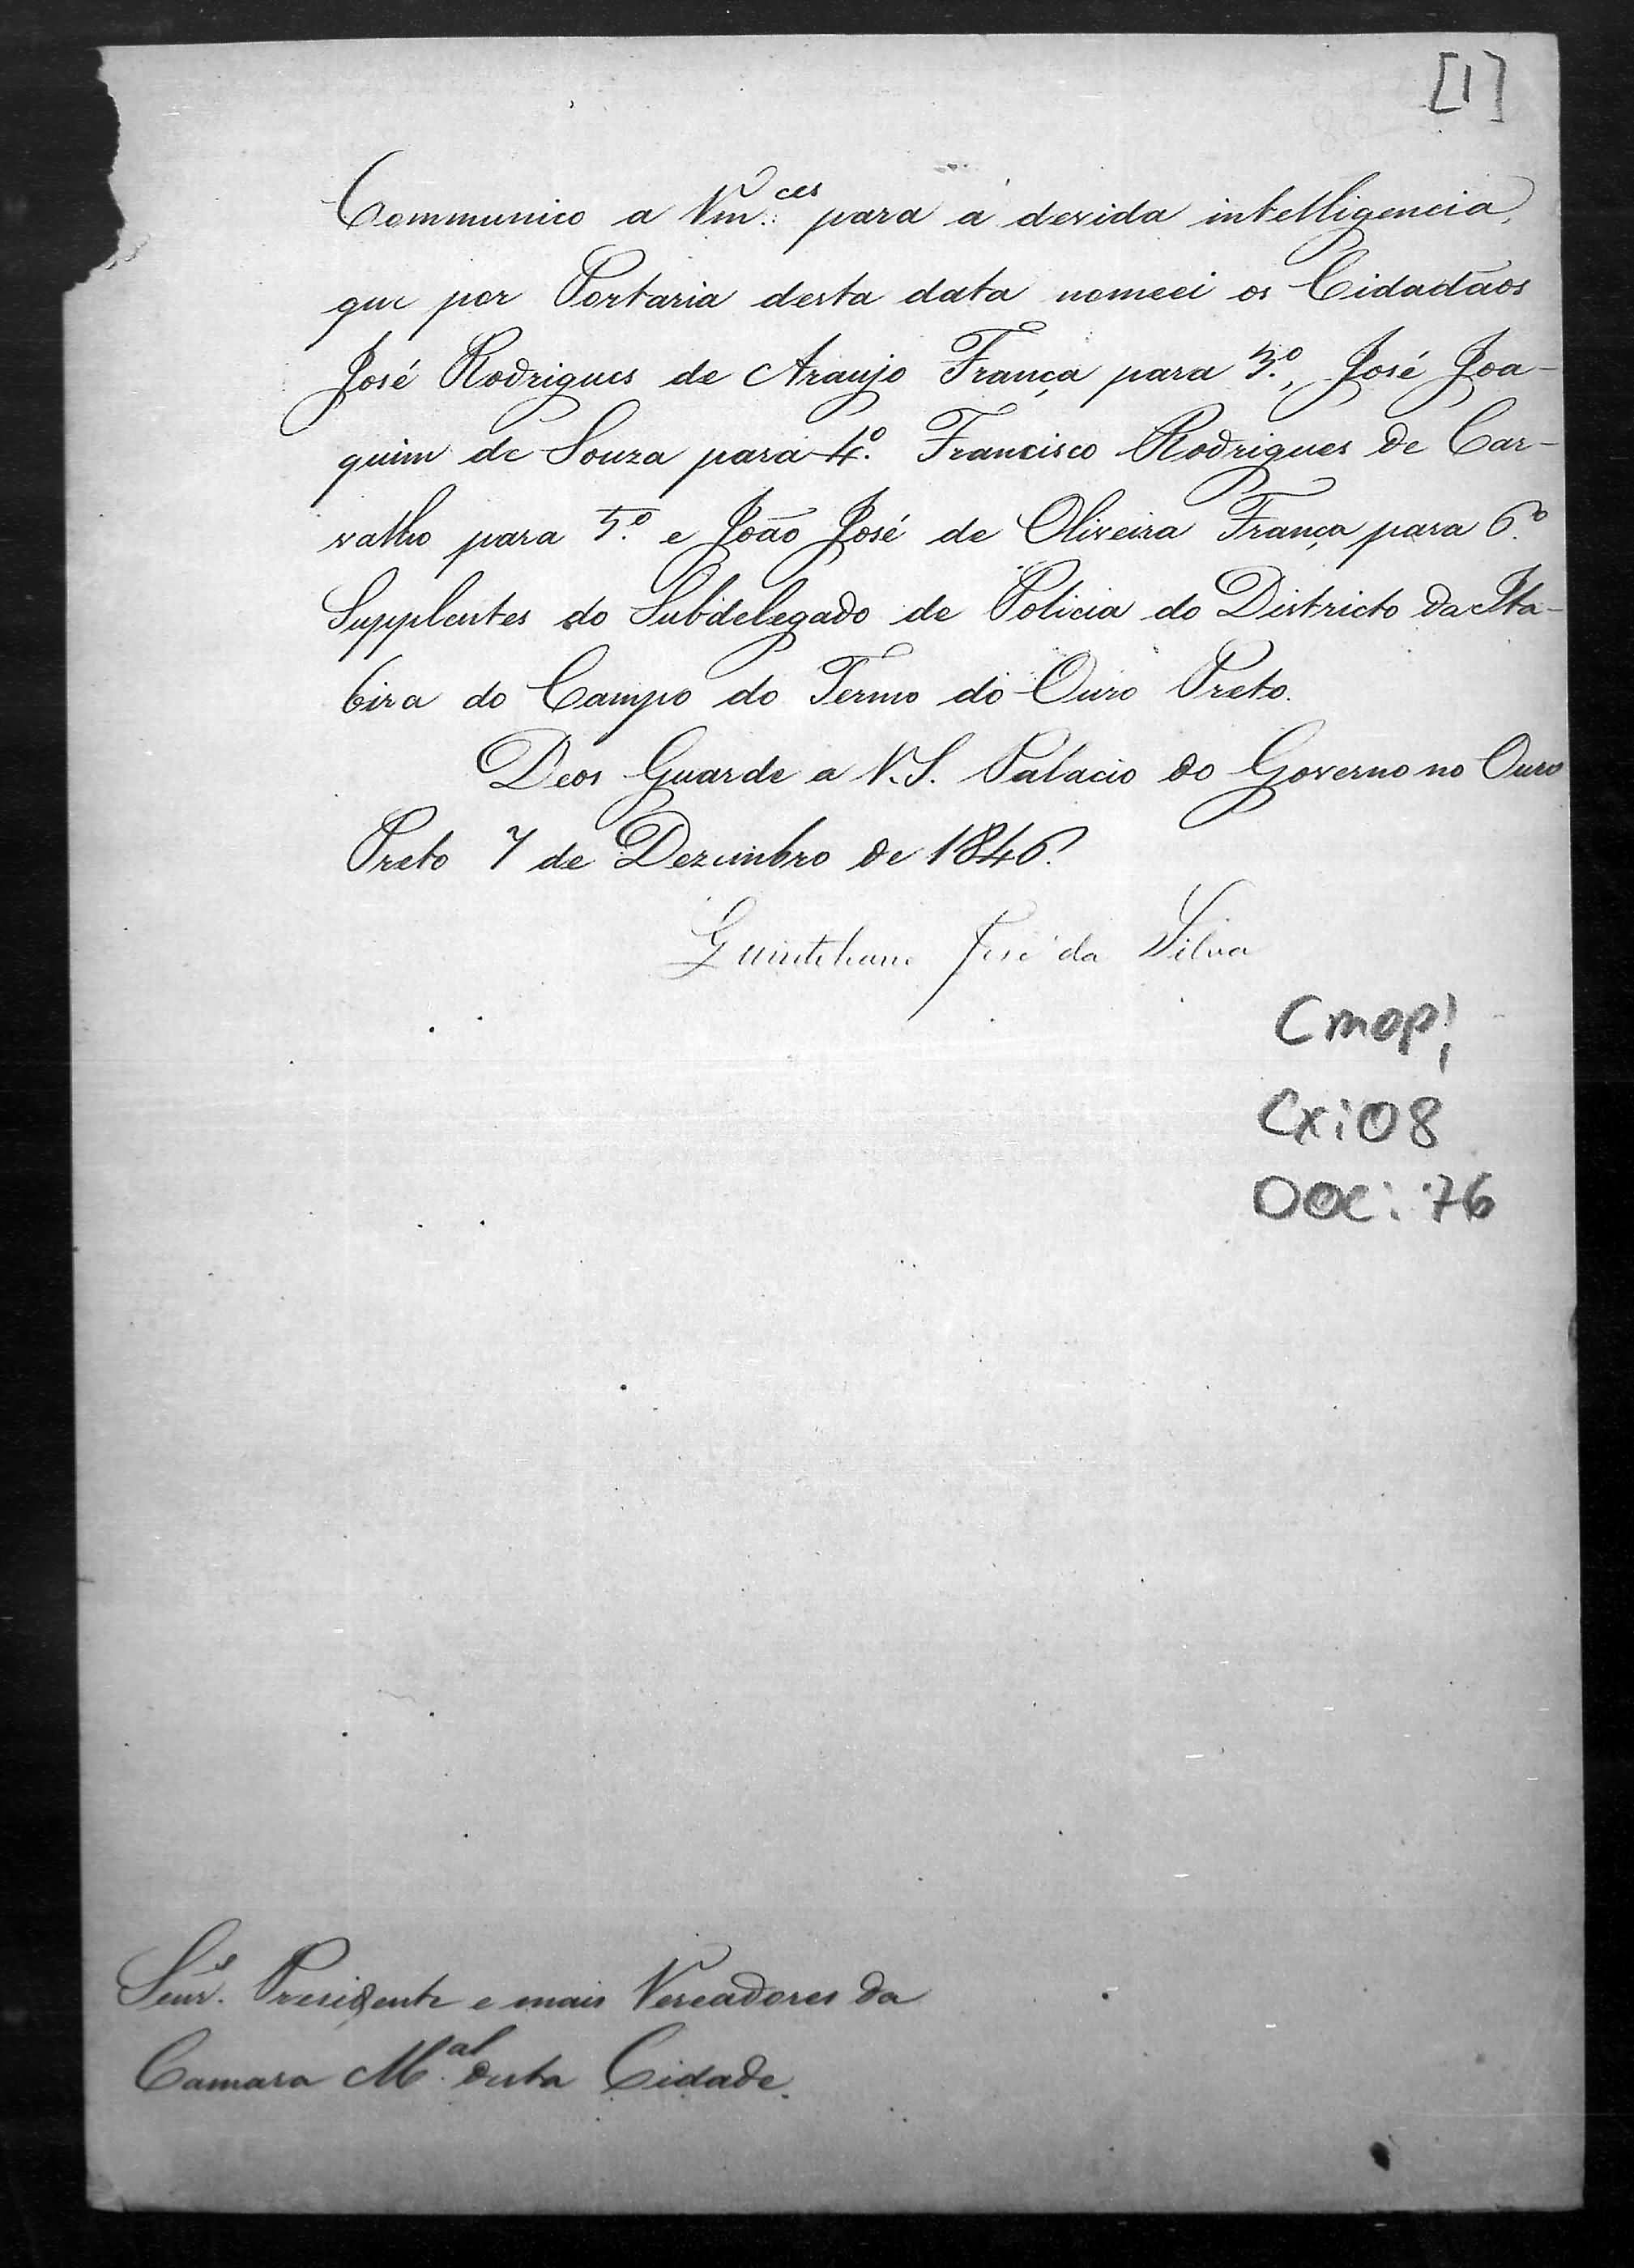 [1]
Communico a Vm.ces para a devida intelligencia,
que por Portaria desta data nomeei os Cidadãos
José Rodrigues de Araujo França para 3.º, José Joa-
quim de Souza para 4.º Francisco Rodrigues de Car-
valho para 5.º e João José de Oliveira França para 6.º
Supplentes do Subdelegado de Policia do Districto da Ita-
bira do Campo do Termo do Ouro Preto.
Deos Guarde a V.S. Palacio do Governo no Ouro
Preto 7 de Dezembro de 1846.
Quintiliano José da Silva
CMOP:
CX:08
DOC:76
Senr.s Presidente e mais Vereadores da
Camara M.al desta Cidade.